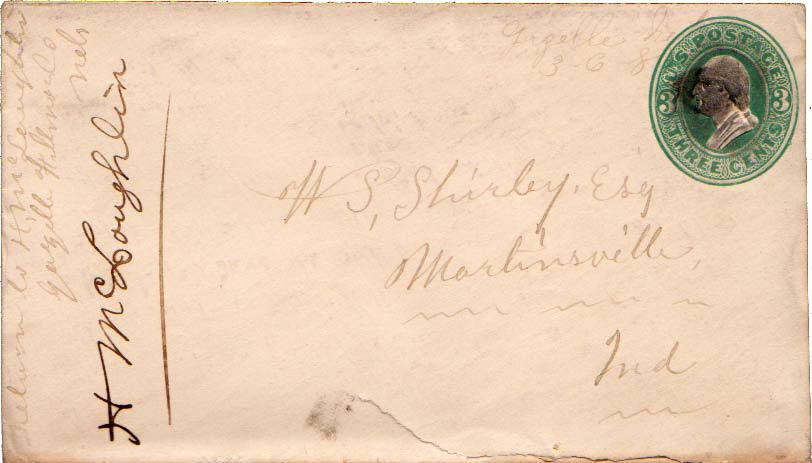 Gazelle Neb
3 6 8
U.S. POSTAGE
3 3
THREE CENTS
W S, Shirley. Esq
Martinsville,
Ind
H McLoughlin
Return to H McLoughlin
Gazelle Fillmore Co
Neb